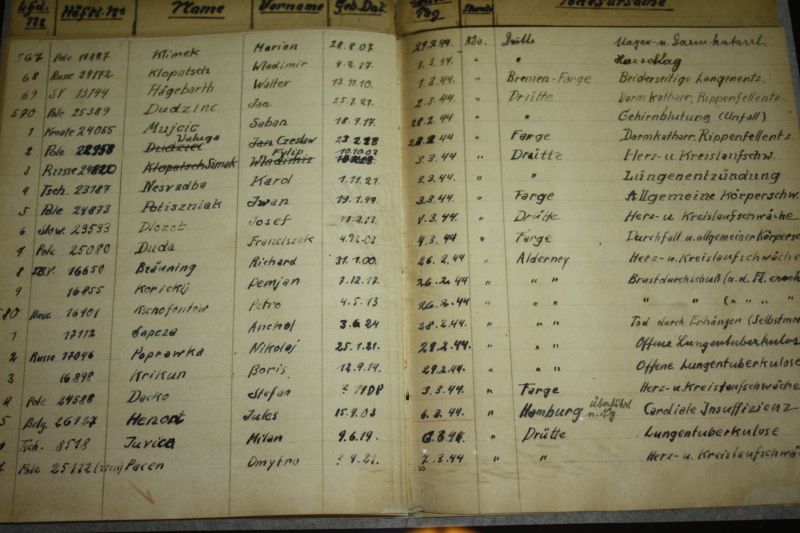 Lfd. Nr Häftl.-Nr Name Vorname Geb. Dat. Tag Todesursache
567 Pole Klimek Marian 28.8.07. 29.2.44. Kdo. Drütte Magen-u. Darmkatarrh
68 Russe 29172 Klopotsch Wladimir 1.3.44. " " Herzschlag
69 SV 13144 Hägebarth Walter 13.11.10. 1.3.44. " Bremen-Farge Beiderseitige Lungenentz.
570 Pole 25389 Dudzinc Jan 25.7.21. 2.3.44. " Drütte Darmkatharr, Rippenfellentz.
1 Kroate 24065 Mujcic Saban 18.9.17. 28.2.44 " " Gehirnblutung (Unfall)
2 Pole 22958 Dudziec Waluga Jan Czeslaw 23.2.28 28.2.44 " Farge Darmkatharr, Rippenfellentz.
3 Russe 24820 Klopotsch Simak Wladimir Filip 10.10.02 3.3.44 " Drütte Herz-u. Kreislaufschw.
4 Tsch. 23187 Nesvadba Karol 1.11.21. 3.3.44. " " Lungenentzündung
5 Pole 24873 Potiszniak Iwan 19.1.99. 3.3.44. " Farge Allgemeine Körperschw.
6 Slow. 23533 Josef 4.3.44. " Drütte Herz-u. Kreislaufschwäche
7 Pole 25080 Duda Franciszek 4.3.44 " Farge Durchfall u. allgemeiner Körpersc
8 16650 Bräuning Richard 31.1.00. 26.2.44 " Alderney Herz-u. Kreislaufschwäche
9 16855 Korickij Demjan 7.12.17. 26.2.44 " " " Brustdurchschuß (a.d. Fl.
580 Russe 16101 Kschofontow Petro 4.5.13 26.2.44. " " " " " (" " "
1 17112 Sapeza Anchol 3.6.24 28.2.44. " " " Tod durch Erhängen (Selbstmo
2 Russe 17046 Poprawka Nikolaj 25.1.21. 28.2.44. " " " Offene Lungentuberkulos
3 16848 Krikun Boris 12.9.14. 29.2.44. " " " Offene Lungentuberkulose
4 Pole 24588 Dacko Stefan 3.3.44. " Farge Herz-u. Kreislaufschwäche
5 Belg. 26187 Henort Jules 15.9.03 6.3.44. " Hamburg überführt n. Ng Cardiale Insuffizienz
Tsch. 8518 Jurica Milan 9.6.19. 6.3.44. " Drütte Lungentuberkulose
Pole 25112 Pacen Dmytro 7.3.44 " " Herz-u. Kreislaufschwä